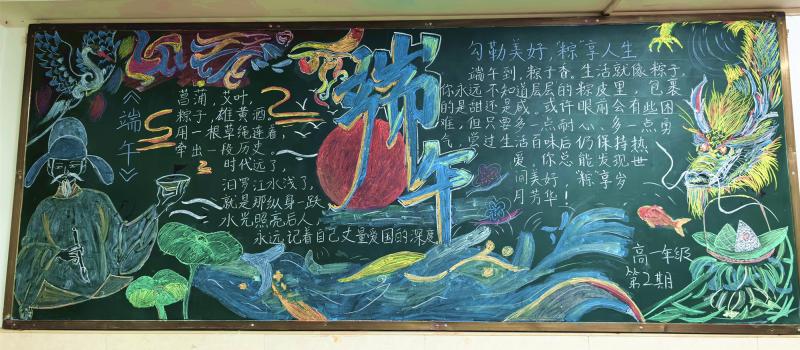 《端午》
菖蒲，艾叶，
粽子，雄黄酒。
用一根草绳连着，
牵出一段历史。
时代远了，
汨罗江水浅了，
就是那纵身一跃
水光照亮后人，
永远记着自己丈量爱国的深度
端午
勾勒美好，粽享人生
端午到，粽子香，生活就像粽子，
你永远不知道层层的粽皮里，包裹
的是甜还是咸。或许眼前会有些困
难，但只要多一点耐心，多一点勇
气，尝过生活百味后仍保持热
爱，你总能发现世
间美好，粽享岁
月芳华！
高一年级
第2期